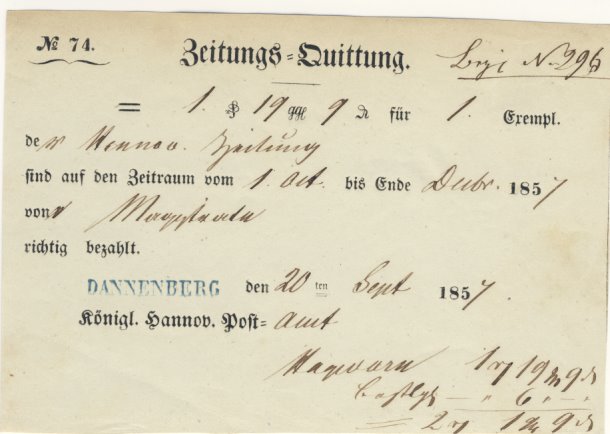 № 74. Zeitungs=Quittung. N. 296
= 1. 19 ggr 9 ₰ für 1. Exempl.
der Hannov. Zeitung
sind auf den Zeitraum vom 1 Oct. bis Ende Decbr. 1857
vom Magistrate
richtig bezahlt.
DANNENBERG den 20 ten Sept 1857.
Königl. Hannov. Post=Amt
1 19 9
6
= 2 1 9